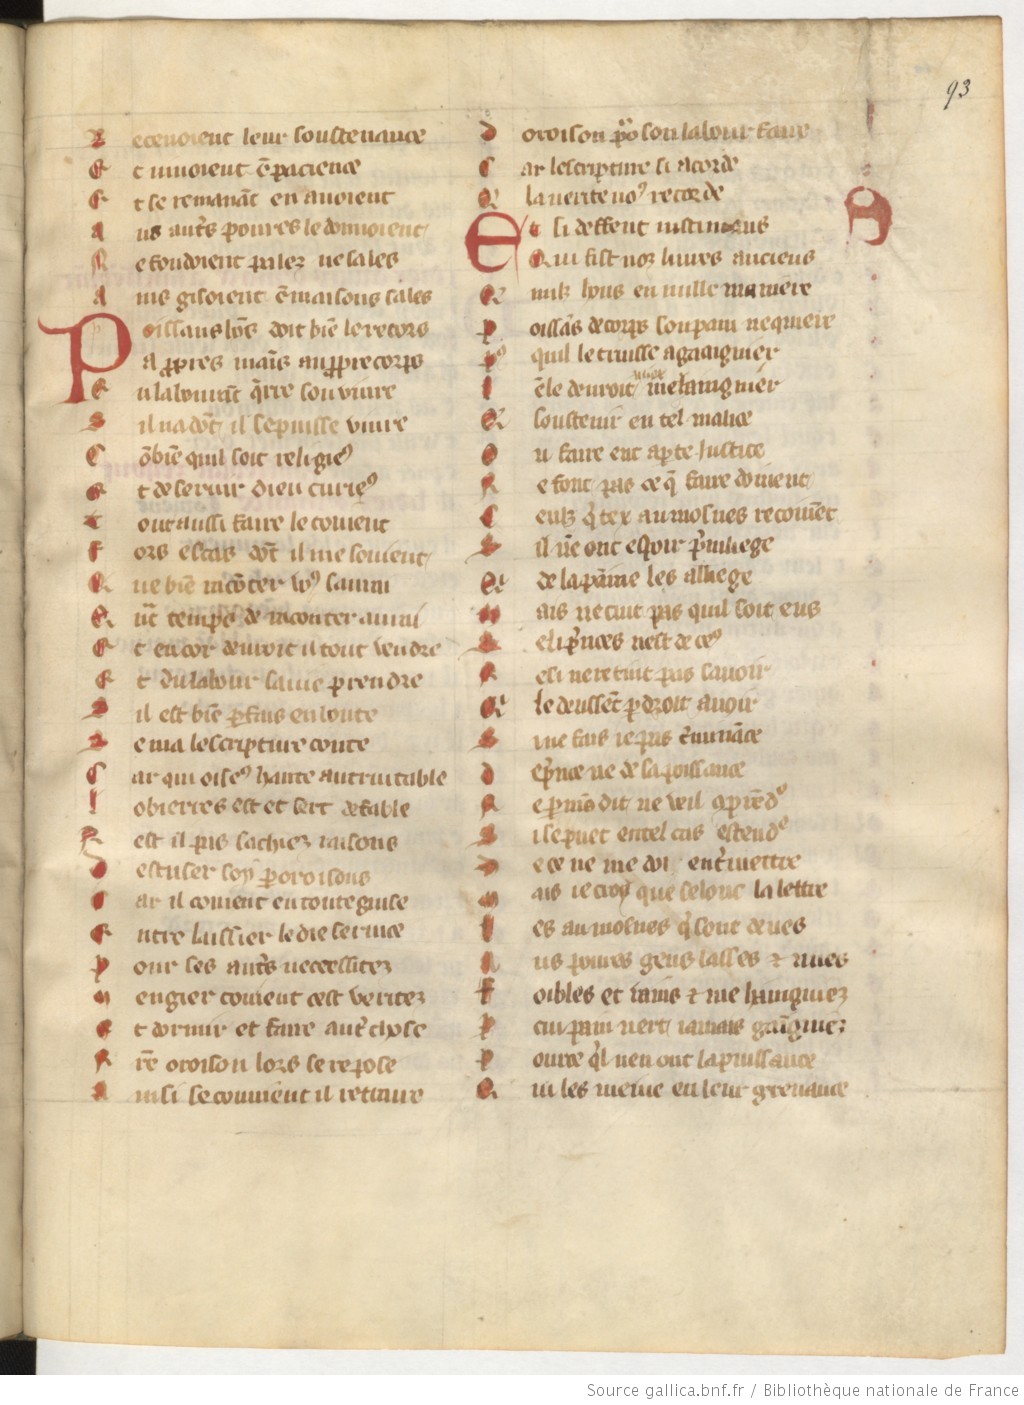 93
Recevoient leur soustenance
Et vivoient ē pacience
Et se remanāt en avoient
Aus aut̄s poures le donnoient
Ne fondoient palez ne sales
Ains gisoient ē maisons sales
Poissans hōs doit biē le recors
A ꝓpres mains au ꝓpre corps
En labourāt q̄rre son vivre
Sil na dōt il se puisse vivre
Cōbiē quil soit religieꝰ
Et de servir dieu curieꝰ
Tout aussi faire le covient
Fors es cas dōt il me sovient
Que biē racōter voꝰ sauroi
Quāt temps de raconter auroi
Et encor devroit il tout vendre
Et du labour sa vie prendre
Sil est biē ꝑfais en bonte
Ce ma lescripture conte
Car qui oiseꝰ hante autrui table
Lobierres est et sert de fable
Nest il pas sachiez raisons
Descuser soy ꝑ oroisons
Car il covient en toute guise
Entre laissier le dieu service
Pour ses aut̄s necessitez
Mengier covient cest veritez
Et dormir et faire aut̄ chose
Nr̄e oroison lors se repose
Ainsi se couvient il retraire
Doroison pour son labour faire
Car lescripture si acorde
Qui la verite noꝰ recorde
Et si deffent iustinians
Qui fist noz livres anciens
Que nulz hons en nulle maniere
Poissās de corps son pain ne quiere
Pꝰ quil le truisse a gaaignier
Len le devroit miex mehaignier
Que soustenir en tel malice
Ou faire ent aperte iustice
Ne font pas ce q̄ faire doivent
Ceulz q̄ tex aumosnes recoivent
Sil nen ont espoir privilege
Qui de la paine les aliege
Mais ne cuit pas quil soit eus
Se li princes nest deceꝰ
Ne si ne recuit pas savoir
Quil le deussēt ꝑ droit avoir
Si ne fais ie pas
De prince ne de sa poissance
Ne par mon dit ne veil cōprendꝰ
Si se puet en tel cas estendꝰ
De ce ne me doi entremettre
Mais ie croy que selonc la lettre
Les aumosnes q̄ sont deues
Aus poures gens lasses ⁊ nues
Foibles et vains ⁊ mehaigniez
Par cui pain nert iamais gaaigniez
Pource q̄l nen ont la puissance
Qui les meiue en leur grevance
Source gallica.bnf.fr / Bibliothèque nationale de France